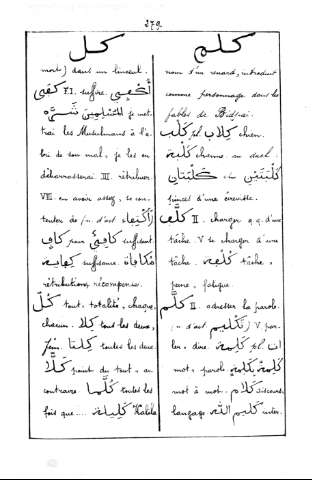 279
كلم
كل
mort) dans un linceul.
كفى F.I. suffire. أكفى
المسلمين شره je met-
trai les Musulmans à l'a-
bri de son mal, je les en
débarrasserai III. rétribuer.
VIII en avoir assez, se con-
tenter de (ـب n. d'act اكتفاء)
كافي pour كاف suffisant
كفاية suffisance. مكافاة
rétribution, récompense.
كل tout, totalité, chaque,
chacun. كلا tous les deux,
fém. كلتا toutes les deux
كلا point du tout, au
contraire كلما toutes les
fois que .... كليلة Kalila
nom d'un renard, introduit
comme personnage dans les
fables de Bidpaï.
كلب pl كلاب chien.
كلبة chienne au duel.
كلبتان
pinces d'une écrevisse.
كلف II charger q.q. d'une
tâche V se charger d'une
tâche. كلفة tâche,
peine, fatigue.
كلم II adresser la parole.
n. d'act (تكليم) V par-
ler, dire كلمة pl ات
mot, parole كلمة بكلمة
mot à mot. كلام discours,
langage كليم الله inter-